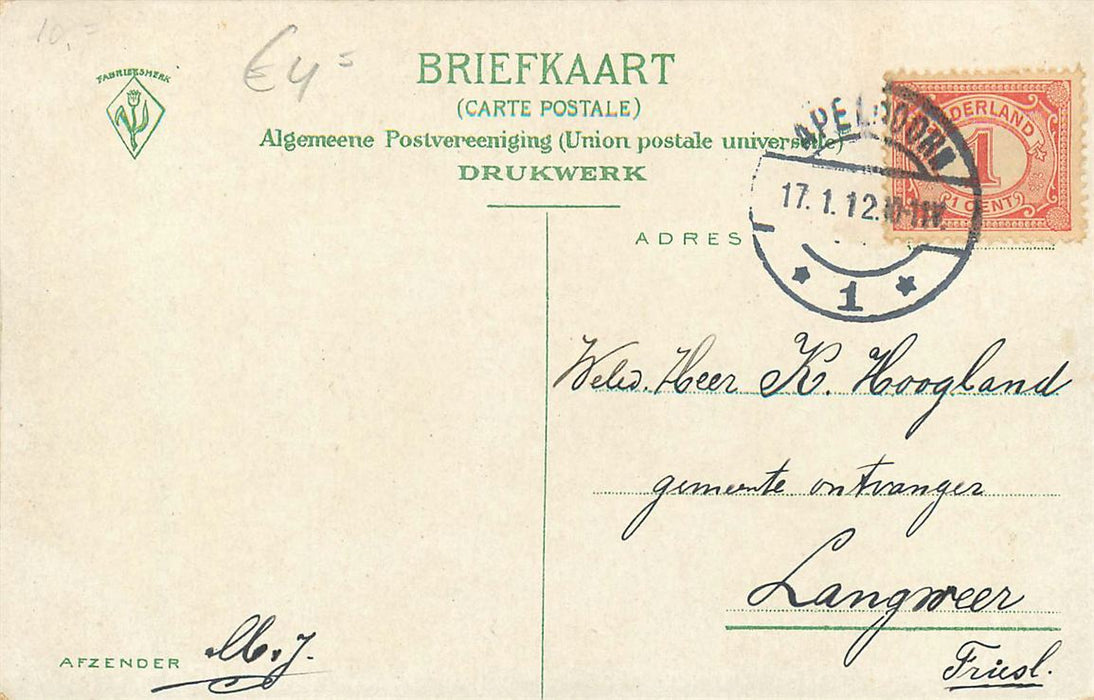 10,-
€4=
FABRIEKSMERK
BRIEFKAART
(CARTE POSTALE)
Algemeene Postvereeniging (Union postale universelle)
DRUKWERK
NEDERLAND
1
1 CENT
APELDOORN
17.1.12.10-11V.
1
ADRES
Weled. Heer K. Hoogland
gemeente ontvanger
Langweer
Friesl.
AFZENDER M.J.